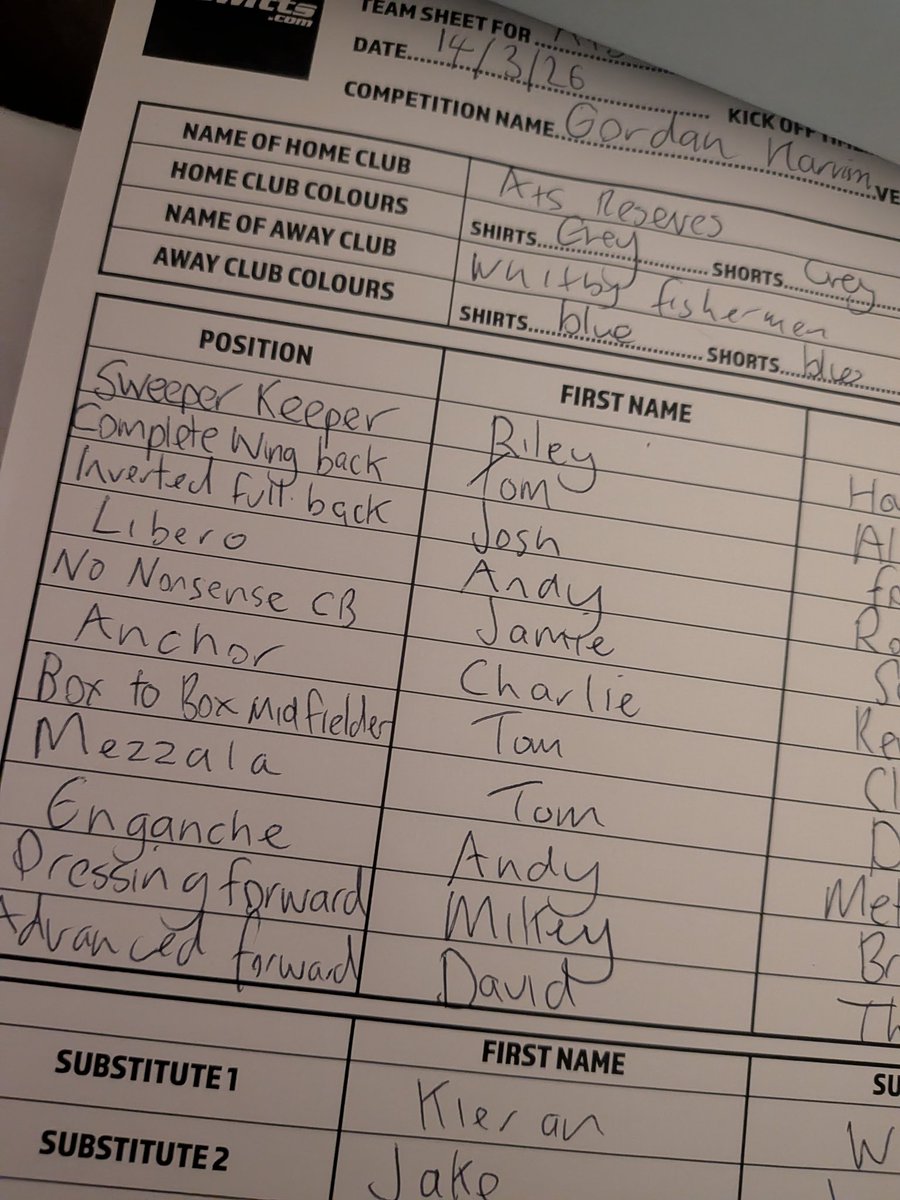 .com
TEAM SHEET FOR
DATE 14/3/26
KICK OFF
COMPETITION NAME Gordan
NAME OF HOME CLUB Ats Reserves
HOME CLUB COLOURS SHIRTS Grey SHORTS Grey
NAME OF AWAY CLUB Whitby fishermen
AWAY CLUB COLOURS SHIRTS blue SHORTS blue
POSITION FIRST NAME
Sweeper Keeper Riley
Complete Wing back Tom
Inverted full back Josh
Libero Andy
No Nonsense CB Jamie
Anchor Charlie
Box to Box Midfielder Tom
Mezzala Tom
Enganche Andy
Pressing forward Mikey
Advanced forward David
FIRST NAME
SUBSTITUTE 1 Kieran
SUBSTITUTE 2 Jake